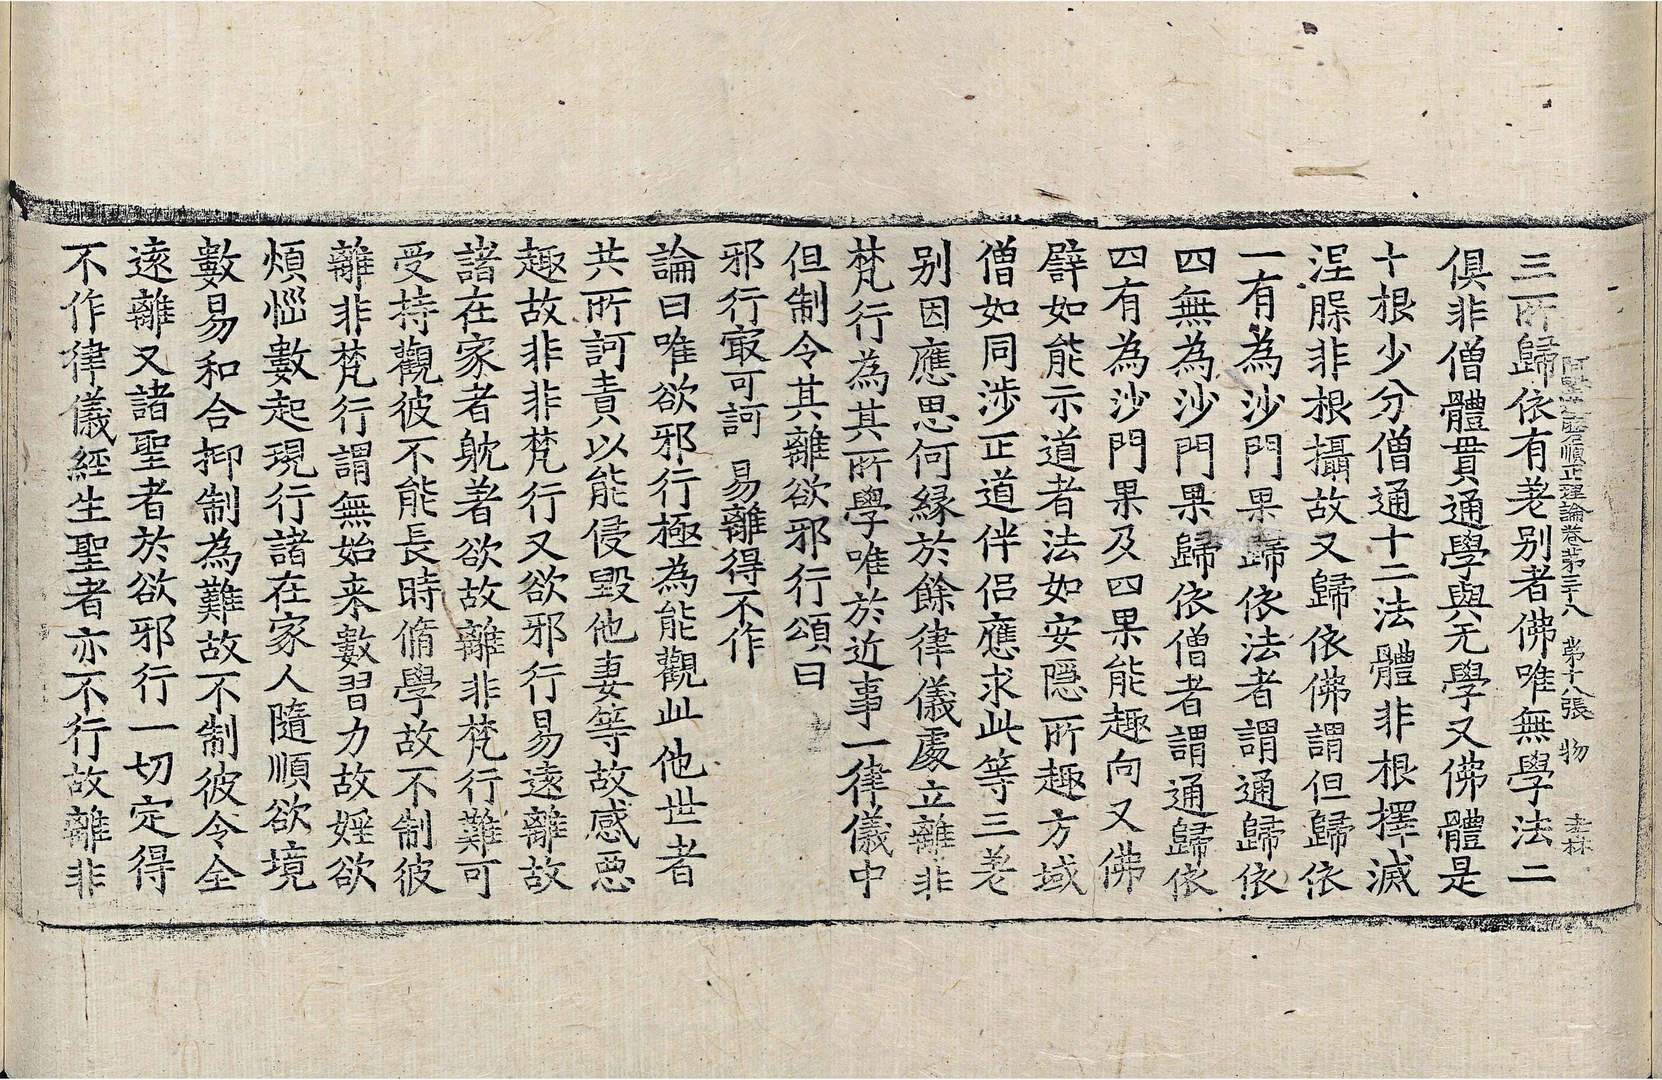 阿毗達磨順正理論卷第三十八 第十八張 物 孝林
三所歸依有差別者佛唯無學法二
俱非僧體貫通學與无學又佛體是
十根少分僧通十二法體非根擇滅
涅槃非根攝故又歸依佛謂但歸依
一有為沙門果歸依法者謂通歸依
四無為沙門果歸依僧者謂通歸依
四有為沙門果及四果能趣向又佛
譬如能示道者法如安隱所趣方域
僧如同涉正道伴侶應求此等三差
别因應思何緣於餘律儀處立離非
梵行為其所學唯於近事一律儀中
但制令其離欲邪行頌曰
邪行㝡可訶 易離得不作
論曰唯欲邪行極為能觀此他世者
共所訶責以能侵毀他妻等故感惡
趣故非非梵行又欲邪行易遠離故
諸在家者躭著欲故離非梵行難可
受持觀彼不能長時脩學故不制彼
離非梵行謂無始来數習力故婬欲
煩惱數起現行諸在家人隨順欲境
數易和合抑制為難故不制彼令全
遠離又諸聖者於欲邪行一切定得
不作律儀經生聖者亦不行故離非